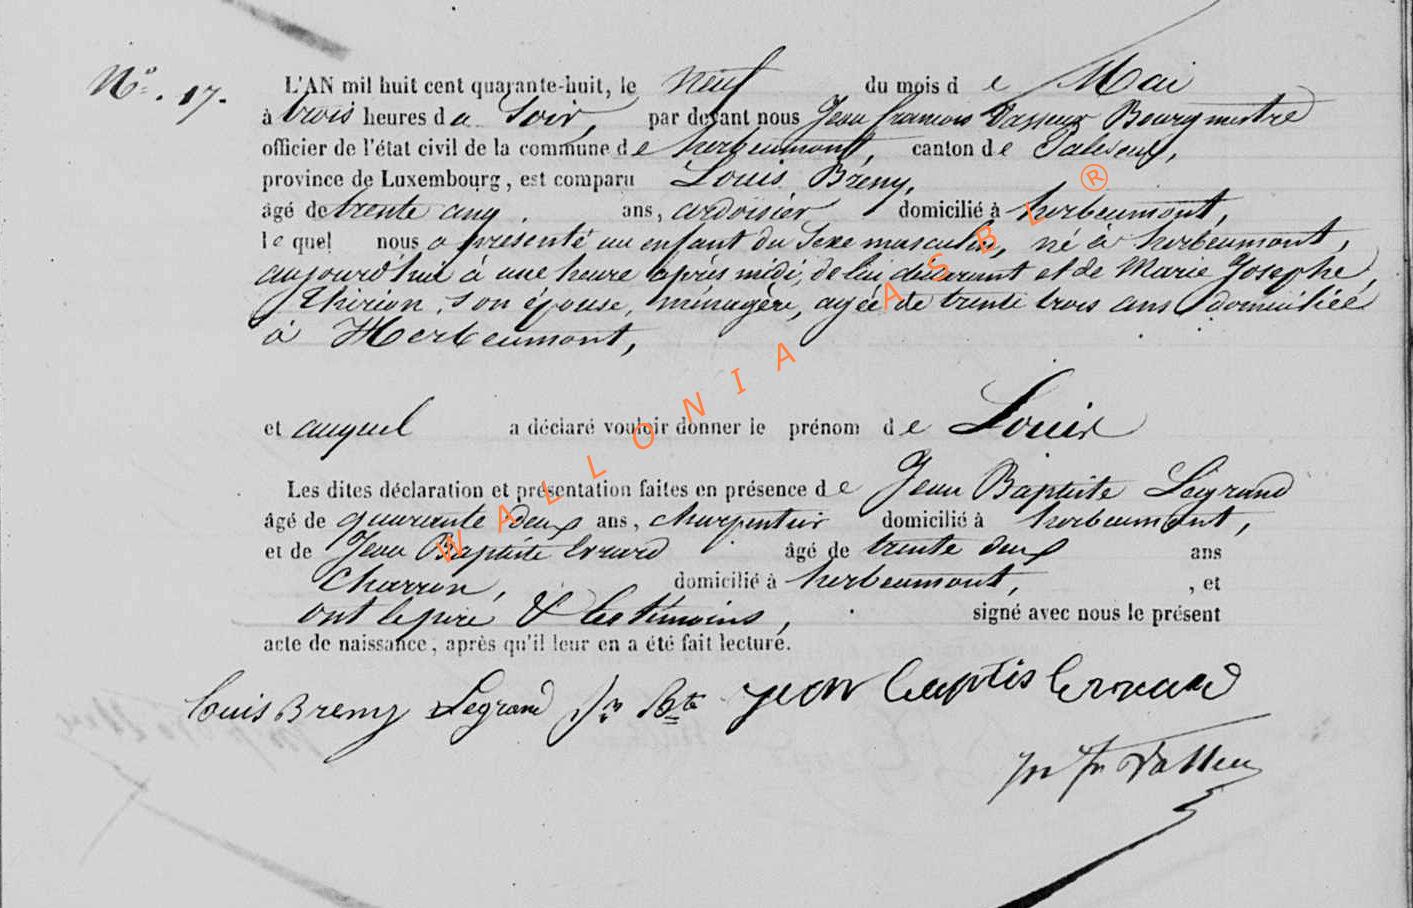 N°. 17.
L'AN mil huit cent quarante-huit, le neuf du mois de Mai
à trois heures du Soir, par devant nous Jean françois Dasseux Bourgmestre
officier de l'état civil de la commune de herbeumont, canton de Paliseul,
province de Luxembourg, est comparu Louis Brémy,
âgé de trente cinq ans, ardoisier domicilié à herbeumont,
lequel nous a présenté un enfant du Sexe masculin, né à herbeumont,
aujourd'hui à une heure après midi, de lui déclarant et de Marie Josephe
Thirion, son épouse, ménagère, agée de trente trois ans domiciliée
à Herbeumont,
et auquel a déclaré vouloir donner le prénom de Louis
Les dites déclaration et présentation faites en présence de Jean Baptiste Legrand
âgé de quarante deux ans, charpentier domicilié à herbeumont,
et de Jean Baptiste Errard âgé de trente deux ans
Charron, domicilié à herbeumont, , et
ont le père & les témoins, signé avec nous le présent
acte de naissance, après qu'il leur en a été fait lecture.
Louis Bremy Legrand Jn Bte jean Baptis
Jn fr
WALLONIA ASBL ®